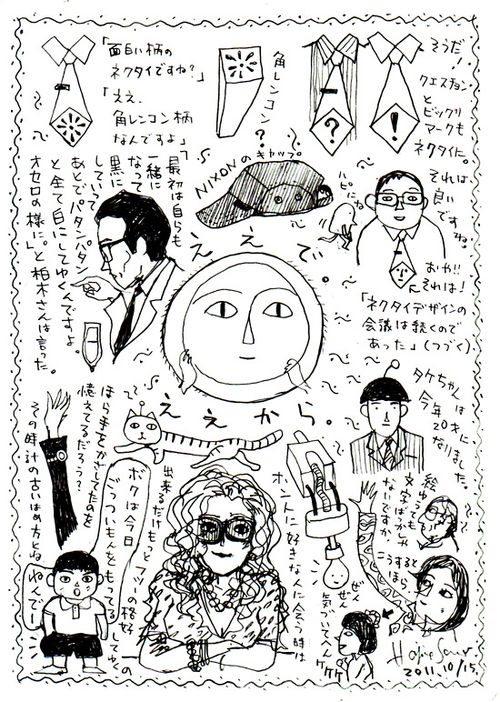 「面白い柄の
ネクタイですね?」
「ええ、
角レンコン柄
なんですよ」
角レンコン?
そうだ!
クエスチョン
と
ビックリ
マークも
ネクタイに。
それは
良い
ですね。
おや!!
それは!
「ネクタイデザインの
会議は続くので
あった」(つづく)
NIXONのキャップ
「最初は自らも
一緒に
なって
黒に
していて
あとでパタンパタン
と全て白にしてゆくんですよ。
オセロの様に」と柏木さんは言った。
ええで。
ええから。
タケちゃんは
今年20才に
なりました。
ほら手をかざしてたのを
憶えてるだろう?
その時計の古いはめ方とね
ボクは今日
ごっついもんをもってる
ねんで!
出来るだけもっと
フツーの格好
でゆくの
ホントに好きな人に会う時は
絵
ゆうても
文字ばっかしや
ないですか
こうすると
ほら、
ぜん
ぜん
気づいてへん
ケケケ
2011.10/15.